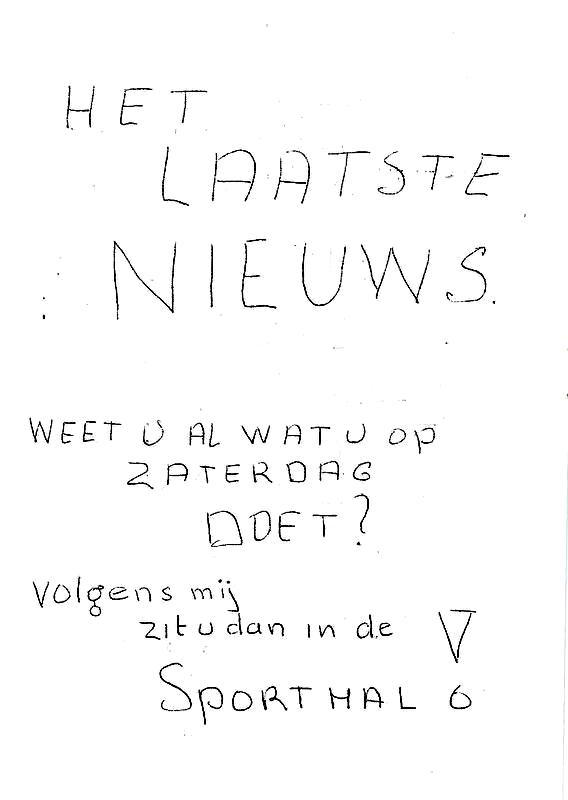 HET
LAATSTE
NIEUWS.
WEET U AL WAT U OP
ZATERDAG
DOET?
Volgens mij
zit u dan in de
SPORTHAL !